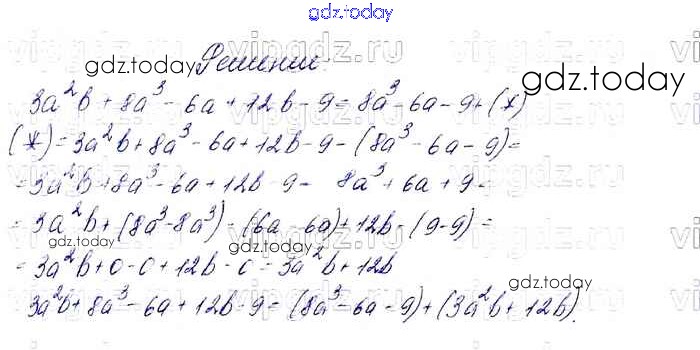 gdz.today
Решение
gdz.today
gdz.today
3a²b + 8a³ - 6a + 12b - 9 = 8a³ - 6a - 9 + (*)
(*) = 3a²b + 8a³ - 6a + 12b - 9 - (8a³ - 6a - 9) =
= 3a²b + 8a³ - 6a + 12b - 9 - 8a³ + 6a + 9 =
= 3a²b + (8a³ - 8a³) - (6a - 6a) + 12b - (9 - 9) =
gdz.today
gdz.today
= 3a²b + 0 - 0 + 12b - 0 = 3a²b + 12b
gdz.today
3a²b + 8a³ - 6a + 12b - 9 = (8a³ - 6a - 9) + (3a²b + 12b).